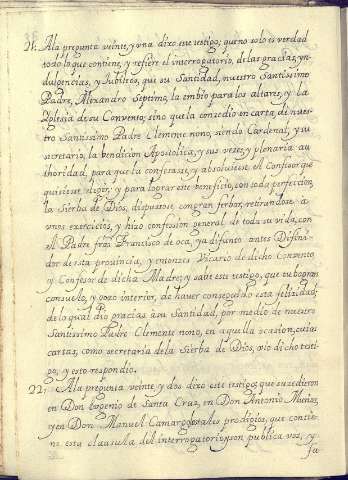 21. Ala pregunta veinte, y vna dixo este testigo; que no solo es verdad
todo lo que contiene, y refiere el interrogatorio, de las gracias, yn-
dulgencias, y Jubileos, que su Santidad, nuestro Santissimo
Padre, Alexandro Septimo, la embio para los altares, y la
Iglesia de su Convento; sino que la concedio en carta, de nues-
tro Santissimo Padre Clemente nono, siendo Cardenal, y su
secretario, la bendicion Apostolica, y sus vezes, y plenaria au
thoridad, para que la confesase, y absoluiese el Confesor que
quisiese elegir, y para lograr este beneficio, con toda perfeccion,
la Sierba de Dios, dispusose, con gran ferbor, retirandose a
vnos exercicios, y hizo confession general, de toda su vida, con
el Padre fray Francisco de oca, ya difunto antes Difini-
dor de esta prouincia, y entonzes Vicario de dicho Convento
y Confesor de dicha Madre; y sabe este testigo, que tubo gran
consuelo, y gozo interior, de hauer conseguido esta felizidad;
de lo qual dio gracias a su Santidad, por medio de nuestro
Santissimo Padre Clemente nono, en aquella ocasion, cuias
cartas, como secretaria de la Sierba de Dios, vio dicho testi-
go, y esto respondio.
22. Ala pregunta veinte y dos dixo este testigo; que sucedieron
en Don Eugenio de Santa Cruz, en Don Antonio Muñoz,
y en Don Manuel Camargo, los prodigios, que contie-
ne esta clausula del interrogatorio, y son publica voz, y
fa